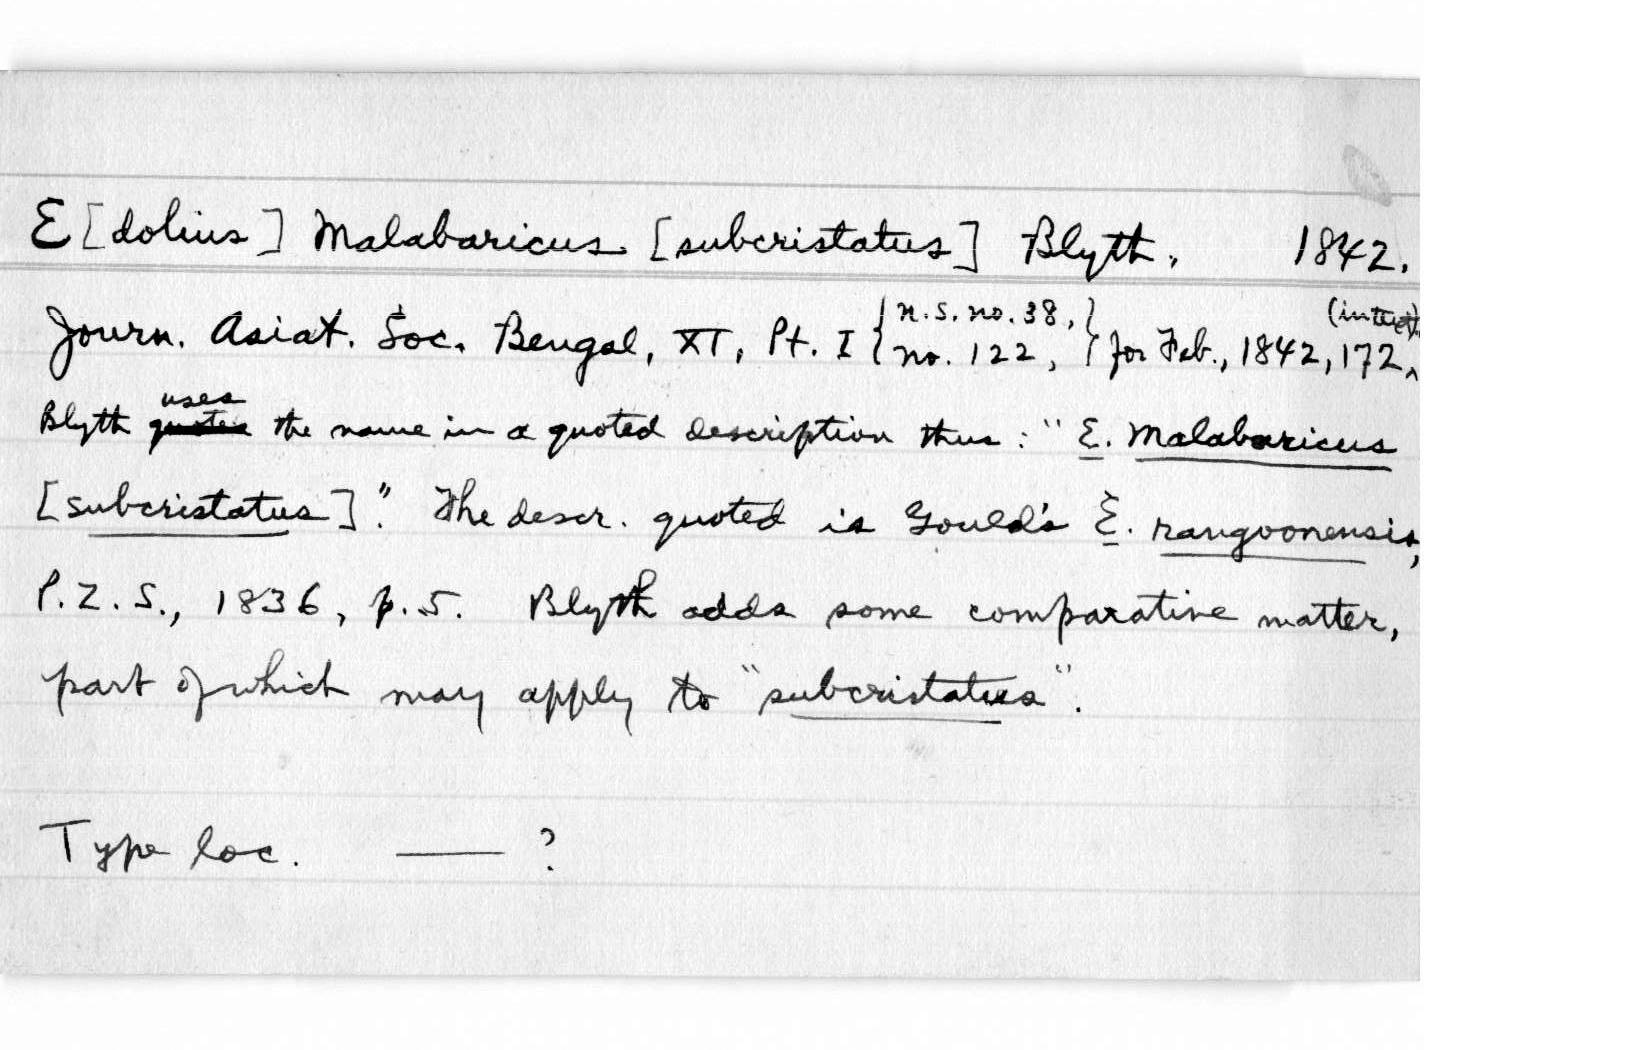 E[dolius] Malabaricus [subcristatus] Blyth. 1842.
Journ. Asiat. Soc. Bengal, XI, Pt. I {n.s. no. 38, no. 122,} for Feb., 1842, 172, (in text)
Blyth uses the name in a quoted description thus: "E. Malabaricus
[subcristatus]". The descr. quoted is Gould's E. rangoonensis,
P.Z.S., 1836, p.5. Blyth adds some comparative matter,
part of which may apply to "subcristatus".
Type loc. —— ?